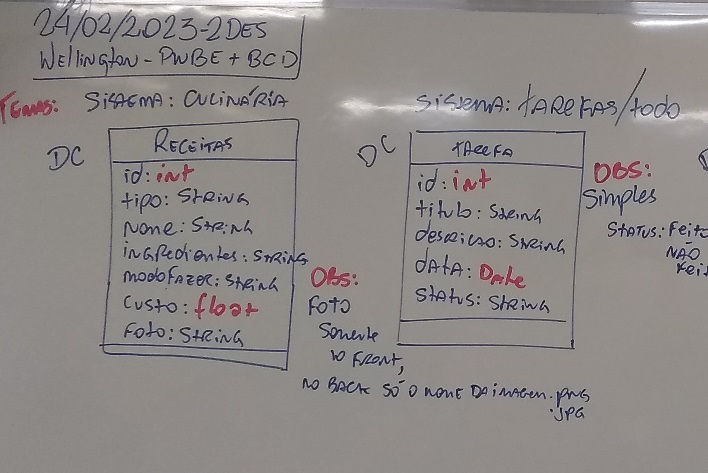 24/02/2023-2DES
Wellington - PWBE + BCD
Temas: Sistema: Culinária
DC
Receitas
id: int
tipo: String
nome: String
ingredientes: String
modoFazer: String
custo: float
Foto: String
OBS:
Foto
Somente
no Front,
no Back só o nome da imagem.png
.jpg
Sistema: tarefas/todo
DC
tarefa
id: int
titulo: String
descricao: String
data: Date
Status: String
OBS:
Simples
Status: Feito
NÃO
Feit